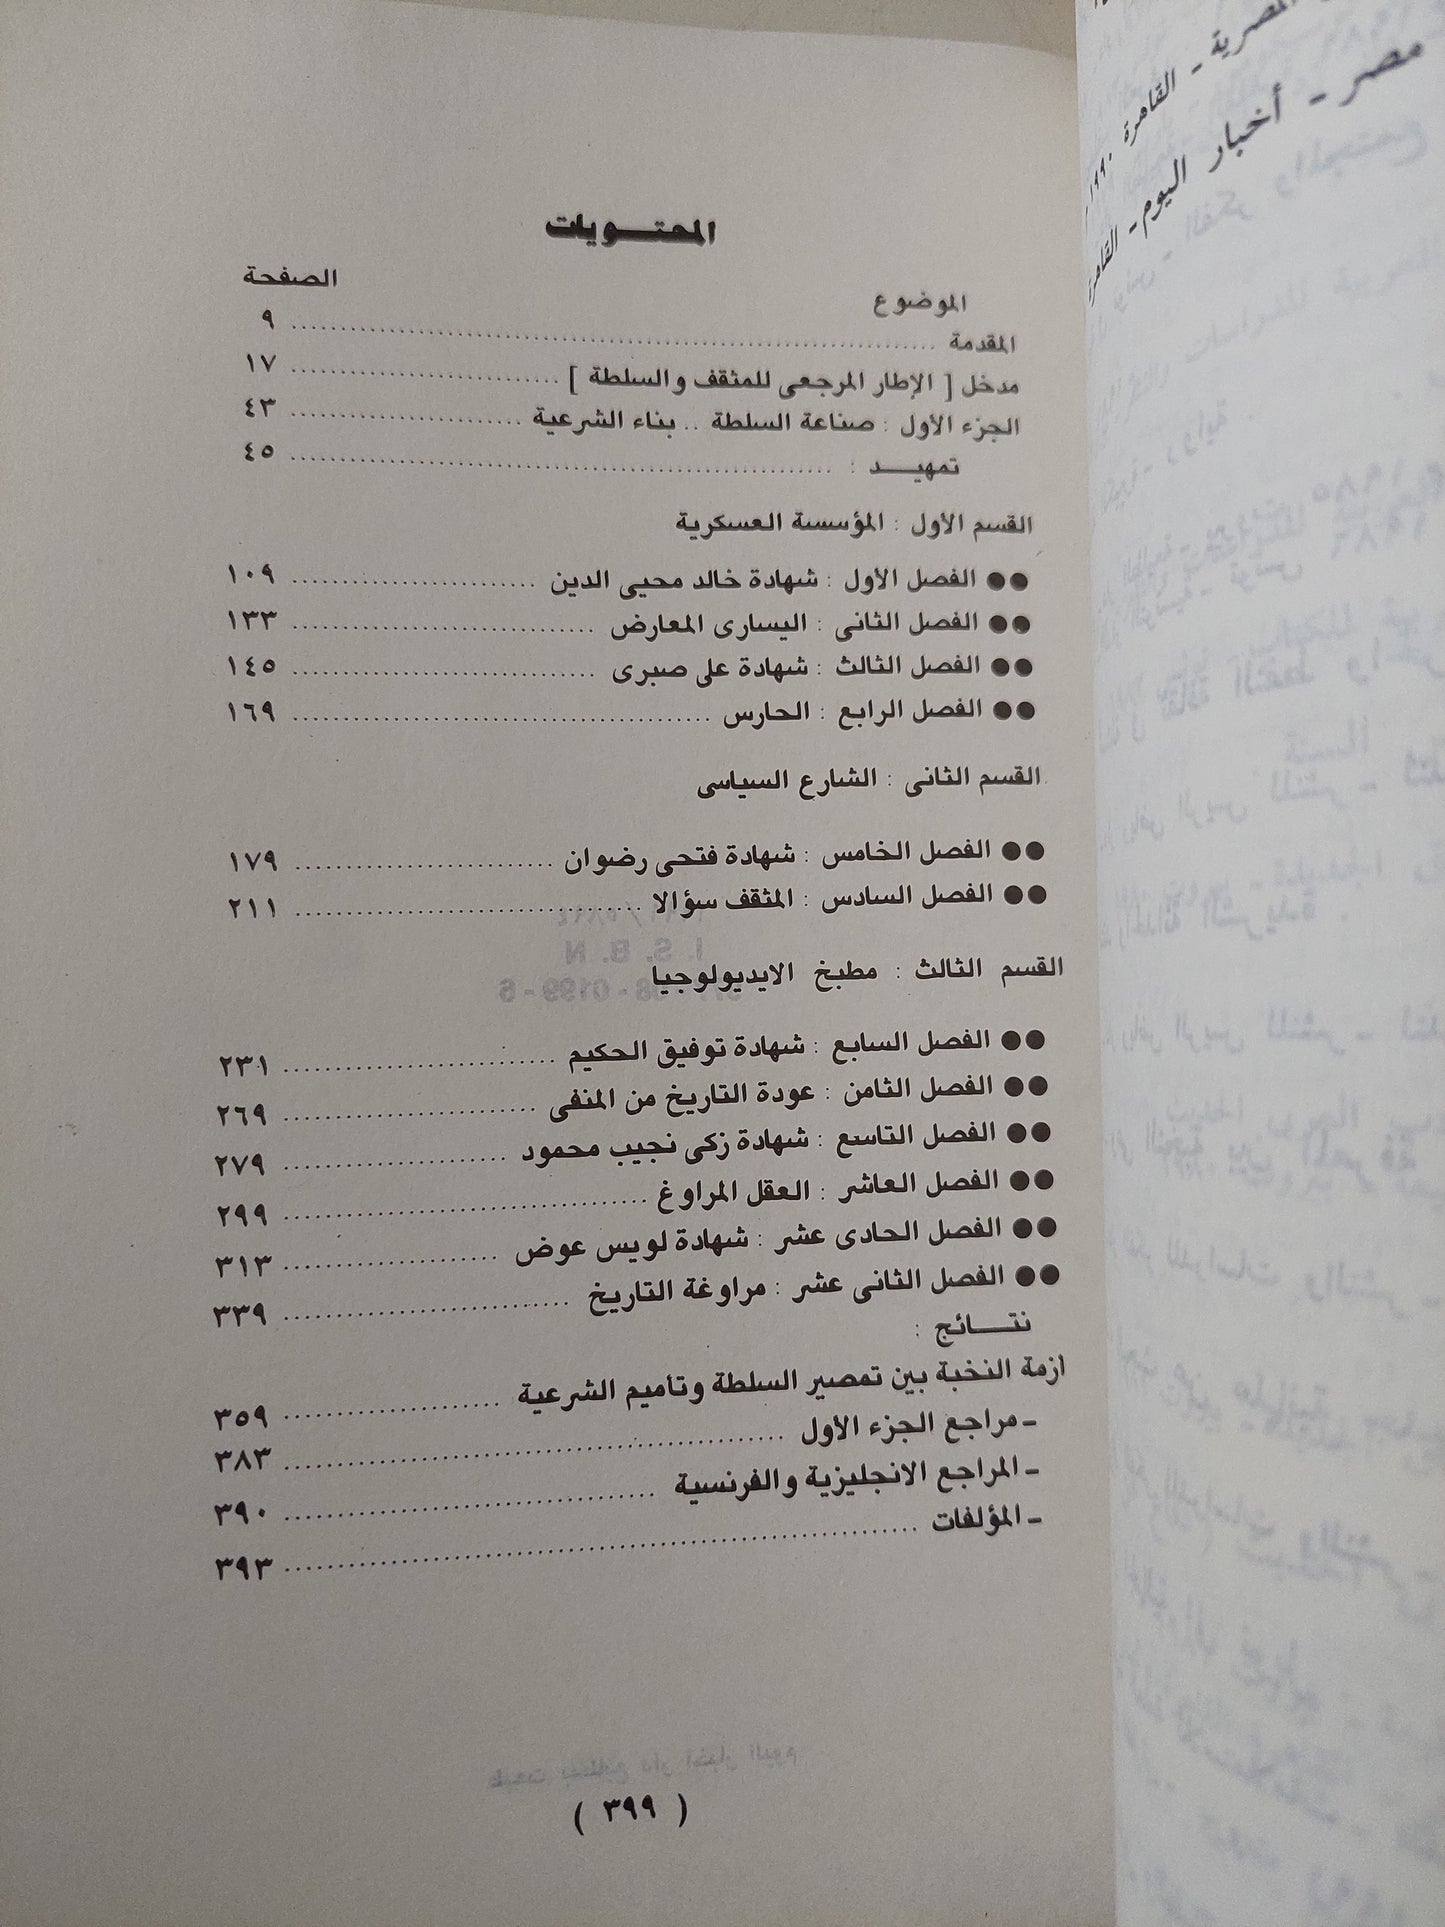 المحتويات
الموضوع الصفحة
المقدمة ٩
مدخل [ الإطار المرجعى للمثقف والسلطة ] ١٧
الجزء الأول : صناعة السلطة .. بناء الشرعية ٤٣
تمهيد : ٤٥
القسم الأول : المؤسسة العسكرية
●● الفصل الأول : شهادة خالد محيى الدين ١٠٩
●● الفصل الثانى : اليسارى المعارض ١٣٣
●● الفصل الثالث : شهادة على صبرى ١٤٥
●● الفصل الرابع : الحارس ١٦٩
القسم الثانى : الشارع السياسى
●● الفصل الخامس : شهادة فتحى رضوان ١٧٩
●● الفصل السادس : المثقف سؤالا ٢١١
القسم الثالث : مطبخ الايديولوجيا
●● الفصل السابع : شهادة توفيق الحكيم ٢٣١
●● الفصل الثامن : عودة التاريخ من المنفى ٢٦٩
●● الفصل التاسع : شهادة زكى نجيب محمود ٢٧٩
●● الفصل العاشر : العقل المراوغ ٢٩٩
●● الفصل الحادى عشر : شهادة لويس عوض ٣١٣
●● الفصل الثانى عشر : مراوغة التاريخ ٣٣٩
نتائج :
ازمة النخبة بين تمصير السلطة وتأميم الشرعية ٣٥٩
- مراجع الجزء الأول ٣٨٣
- المراجع الانجليزية والفرنسية ٣٩٠
- المؤلفات ٣٩٣
( ٣٩٩ )
المصرية - القاهرة ١٩٩٠
مصر - أخبار اليوم - القاهرة